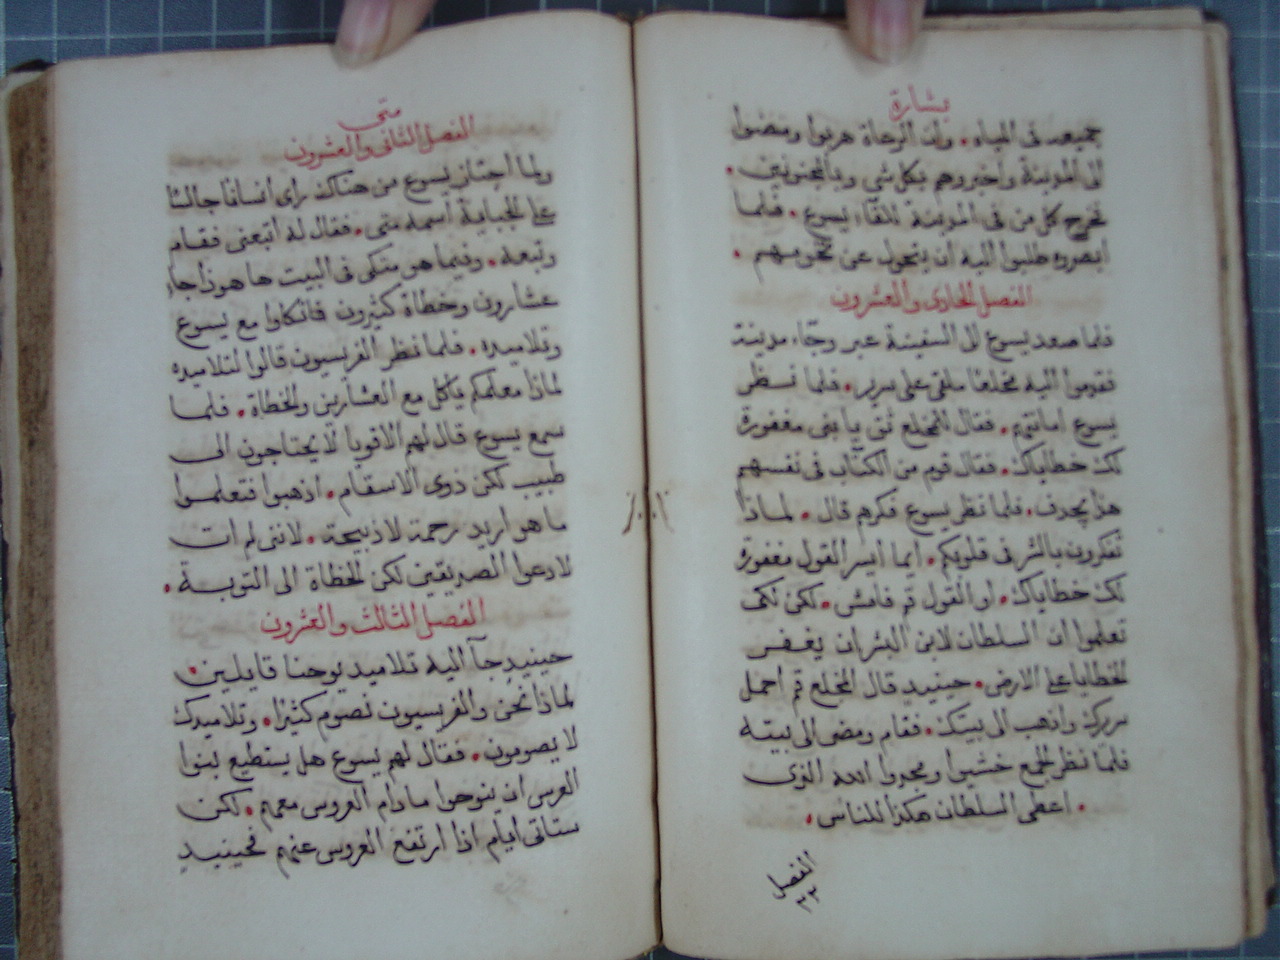 بشارة
جميعه في المياه. وان الرعاة هربوا ومضوا
الى المدينة واخبروهم بكل شي وبالمجنونين.
فخرج كل من في المدينة للقاء يسوع. فلما
ابصروه طلبوا اليه ان يتحول عن تخومهم.
الفصل الحادي والعشرون
فلما صعد يسوع الى السفينة عبر وجاء مدينته
فقدموا اليه مخلعا ملقى على سرير. فلما نظر
يسوع امانتهم. فقال للمخلع ثق يا بني مغفورة
لك خطاياك. فقال قوم من الكتاب في نفسهم
هذا يجدف. فلما نظر يسوع فكرهم قال. لماذا
تفكرون بالشر في قلوبكم. ايما ايسر القول مغفورة
لك خطاياك. او القول قم فامش. لكن لكي
تعلموا ان السلطان لابن البشر ان يغفر
الخطايا على الارض. حينيد قال للمخلع قم احمل
سريرك واذهب الى بيتك. فقام ومضى الى بيته
فلما نظر الجمع خشيوا ومجدوا الله الذي
اعطى السلطان هكذا للناس.
الفصل
٢٢
متى
الفصل الثاني والعشرون
ولما اجتاز يسوع من هناك راى انسانا جالسا
على الجباية اسمه متى. فقال له اتبعني فقام
وتبعه. وفيما هو متكي في البيت ها هوذا جاء
عشارون وخطاة كثيرون فاتكاوا مع يسوع
وتلاميده. فلما نظر الفريسيون قالوا لتلاميده
لماذا معلمكم ياكل مع العشارين والخطاة. فلما
سمع يسوع قال لهم الاقويا لا يحتاجون الى
طبيب لكن ذوي الاسقام. اذهبوا فتعلموا
ما هو اريد رحمة لا ذبيحة. لانني لم ات
لادعوا الصديقين لكن الخطاة الى التوبة.
الفصل الثالث والعشرون
حينيد جآ اليه تلاميد يوحنا قايلين.
لماذا نحن والفريسيون نصوم كثيرا. وتلاميدك
لا يصومون. فقال لهم يسوع هل يستطيع بنوا
العرس ان ينوحوا ما دام العروس معهم. لكن
ستاتي ايام اذا ارتفع العروس عنهم فحينيد